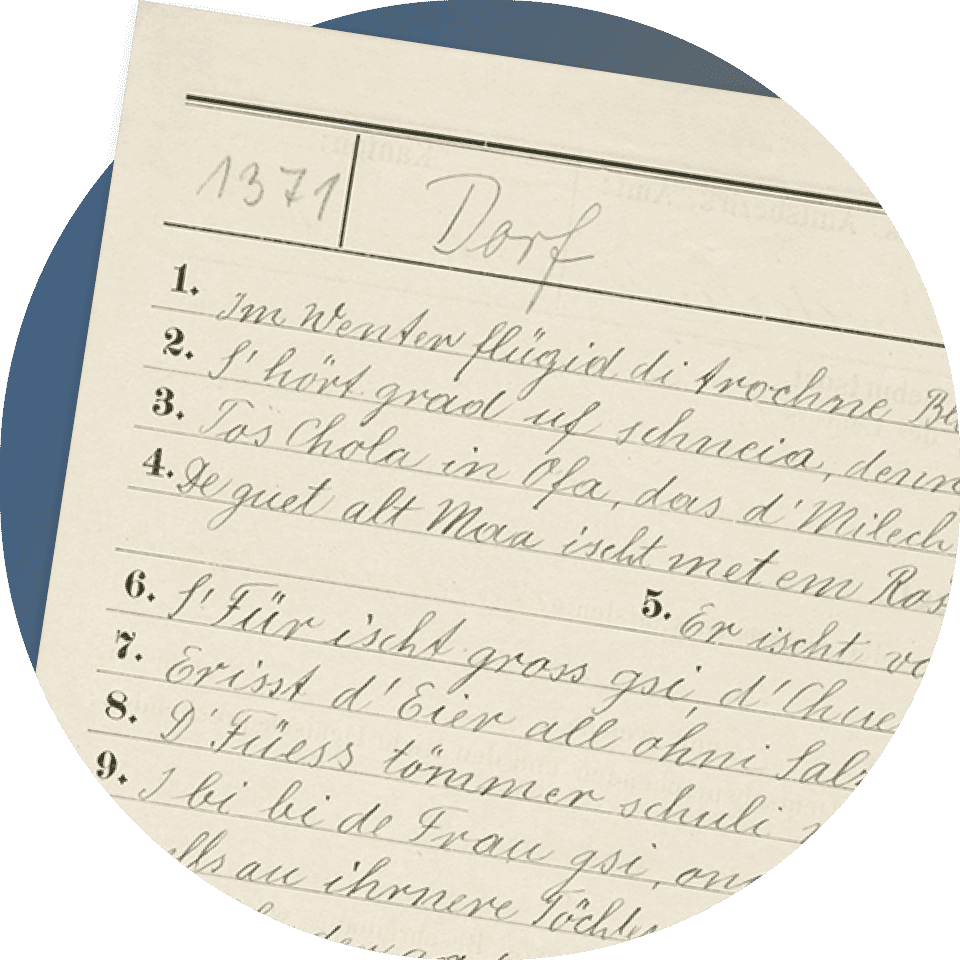 1371 Dorf
1. Im Wenter flügid di trochne
2. S' hört grad uf schneia, denn
3. Tös Chola in Ofa, das d' Milech
4. De guet alt Maa ischt met em
5. Er ischt
6. S' Für ischt gross gsi, d' Chue
7. Er isst d' Eier all ohni Salz
8. D' Füess tömmer schuli
9. I bi bi de Frau gsi, ond
au ihrnere Töchter